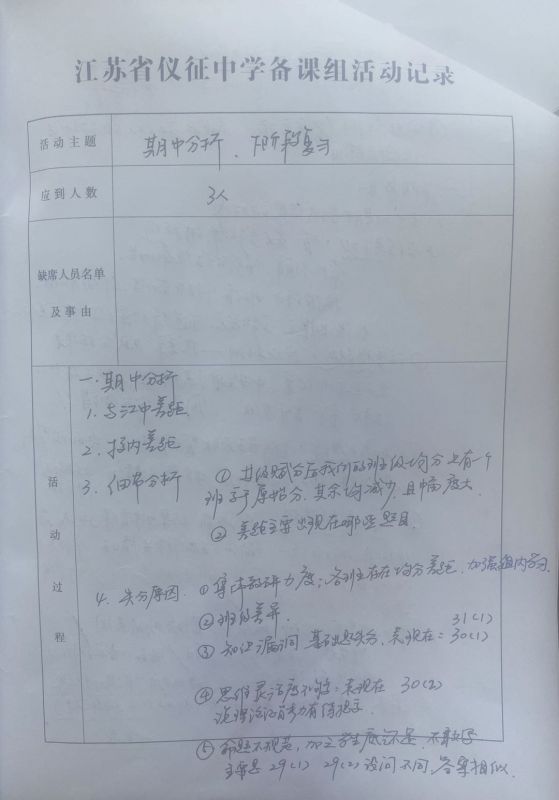 江苏省仪征中学备课组活动记录
活动主题
期中分析、下阶段复习
应到人数
3人
缺席人员名单
及事由
活动过程
一、期中分析
1. 与江中差距
2. 校内差距
3. 细节分析 ① 其级赋分后我们的班级均分上有一个
班高于原始分,其余均减少,且幅度大.
② 差距主要出现在哪些题目
4. 失分原因 ① 集体教研力度:各班主存在均分差距,加强组内学习.
② 班级差异.
31(1)
③ 知识漏洞 基础题失分,表现在:30(1)
④ 思维灵活度不够:表现在 30(2)
论理论证能力有待提高
⑤ 命题不规范,加之学生底子不足,
主要是 29(1) 29(2) 设问不同,答案相似.